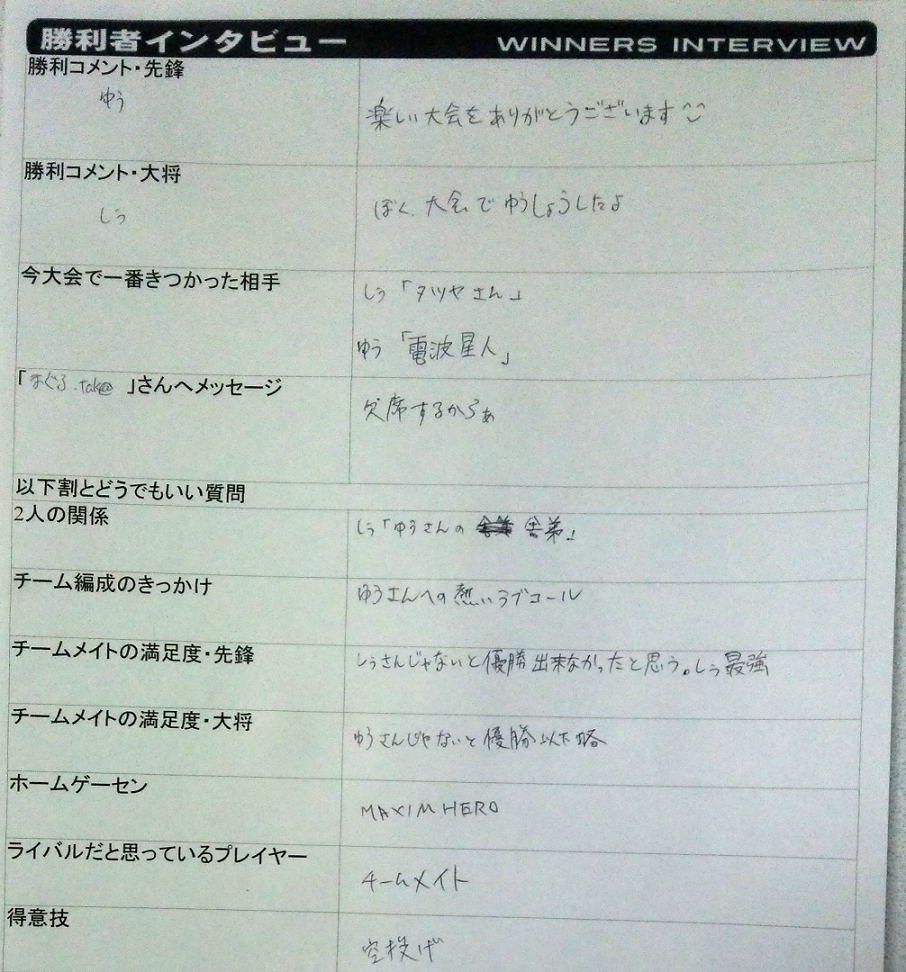 勝利者インタビュー WINNERS INTERVIEW
勝利コメント・先鋒
ゆう
楽しい大会をありがとうございます^^
勝利コメント・大将
しう
ぼく、大会でゆうしょうしたよ
今大会で一番きつかった相手
しう「タツヤさん」
ゆう「電波星人」
「まぐろ.tak@」さんへメッセージ
欠席するからぁ
以下割とどうでもいい質問
2人の関係
しう「ゆうさんの 舎弟」
チーム編成のきっかけ
ゆうさんへの熱いラブコール
チームメイトの満足度・先鋒
しうさんじゃないと優勝出来なかったと思う。しう最強
チームメイトの満足度・大将
ゆうさんじゃないと優勝以下略
ホームゲーセン
MAXIM HERO
ライバルだと思っているプレイヤー
チームメイト
得意技
空投げ